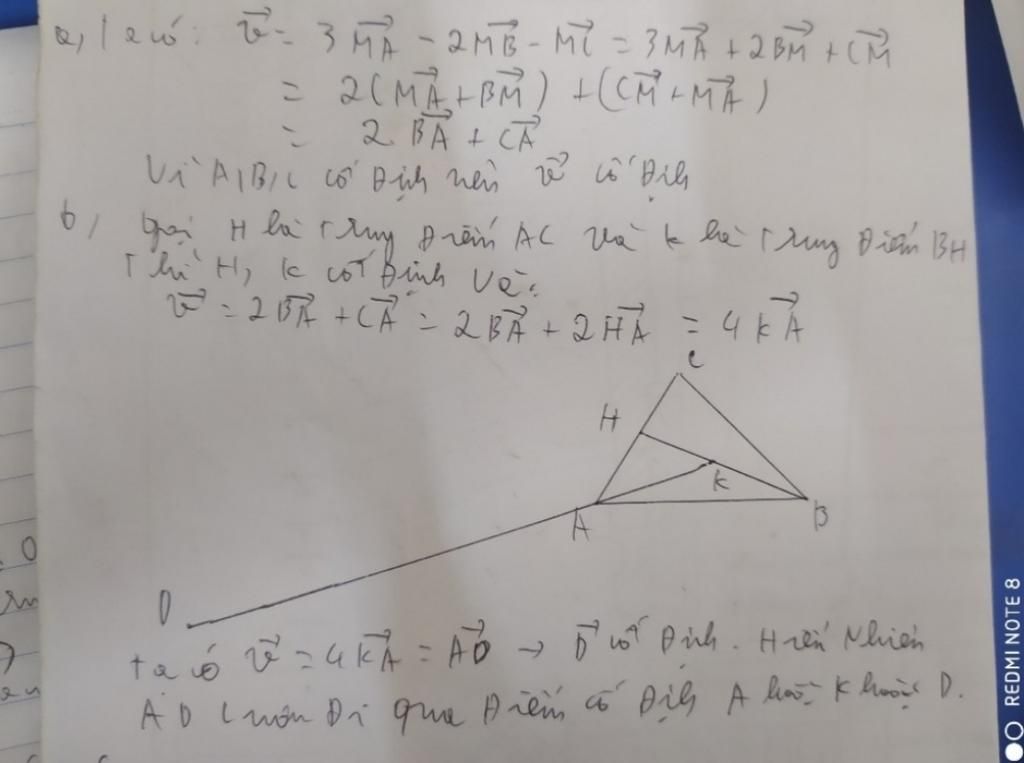 a, Ta có: v⃗ = 3MA⃗ - 2MB⃗ - MC⃗ = 3MA⃗ + 2BM⃗ + CM⃗
= 2(MA⃗ + BM⃗) + (CM⃗ + MA⃗)
= 2BA⃗ + CA⃗
Vì A,B,C cố định nên v⃗ cố định
b, Gọi H là trung điểm AC và K là trung điểm BH
Thì H, K cố định và:
v⃗ = 2BA⃗ + CA⃗ = 2BA⃗ + 2HA⃗ = 4KA⃗
C
H
K
A
B
D
ta có v⃗ = 4KA⃗ = AD⃗ → D⃗ cố định. Hiển Nhiên
AD luôn đi qua điểm cố định A hoặc K hoặc D.
REDMI NOTE 8